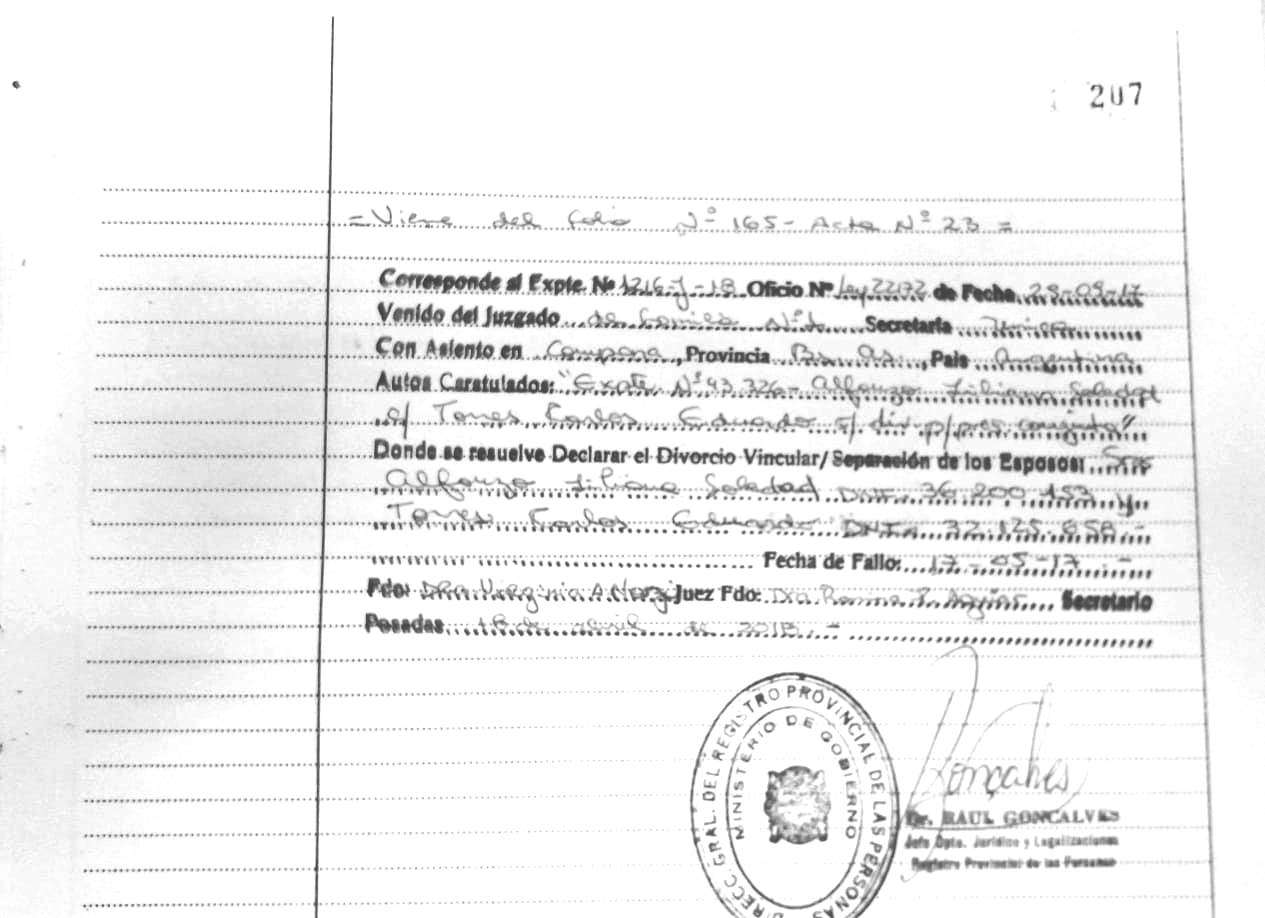 207
= Viene del folio Nº 165 - Acta Nº 23 =
Corresponde al Expte. Nº 1216-J-18 Oficio Nº Ley 22172 de Fecha
Venido del Juzgado de Familia Nº 1 Secretaría Única
Con Asiento en Campana, Provincia Bs. As., País Argentina
Autos Caratulados: "Expte. Nº 43.326 - Alfonzo Liliana Soledad
c/ Torres Carlos Eduardo s/ div. p/ pres. conjunta"
Donde se resuelve Declarar el Divorcio Vincular/Separación de los Esposos:
Alfonzo Liliana Soledad DNI 36.200.153 y
Torres Carlos Eduardo DNI 32.125.658.-
Fecha de Fallo: 17-05-17.-
Fdo: Dra. Virginia A. Juez Fdo: Dra Romina Secretario
Posadas, 18 de abril de 2018.-
DIRECC. GRAL. DEL REGISTRO PROVINCIAL DE LAS PERSONAS
MINISTERIO DE GOBIERNO
Gonçalves
Dr. RAUL GONCALVES
Jefe Dpto. Jurídico y Legalizaciones
Registro Provincial de las Personas